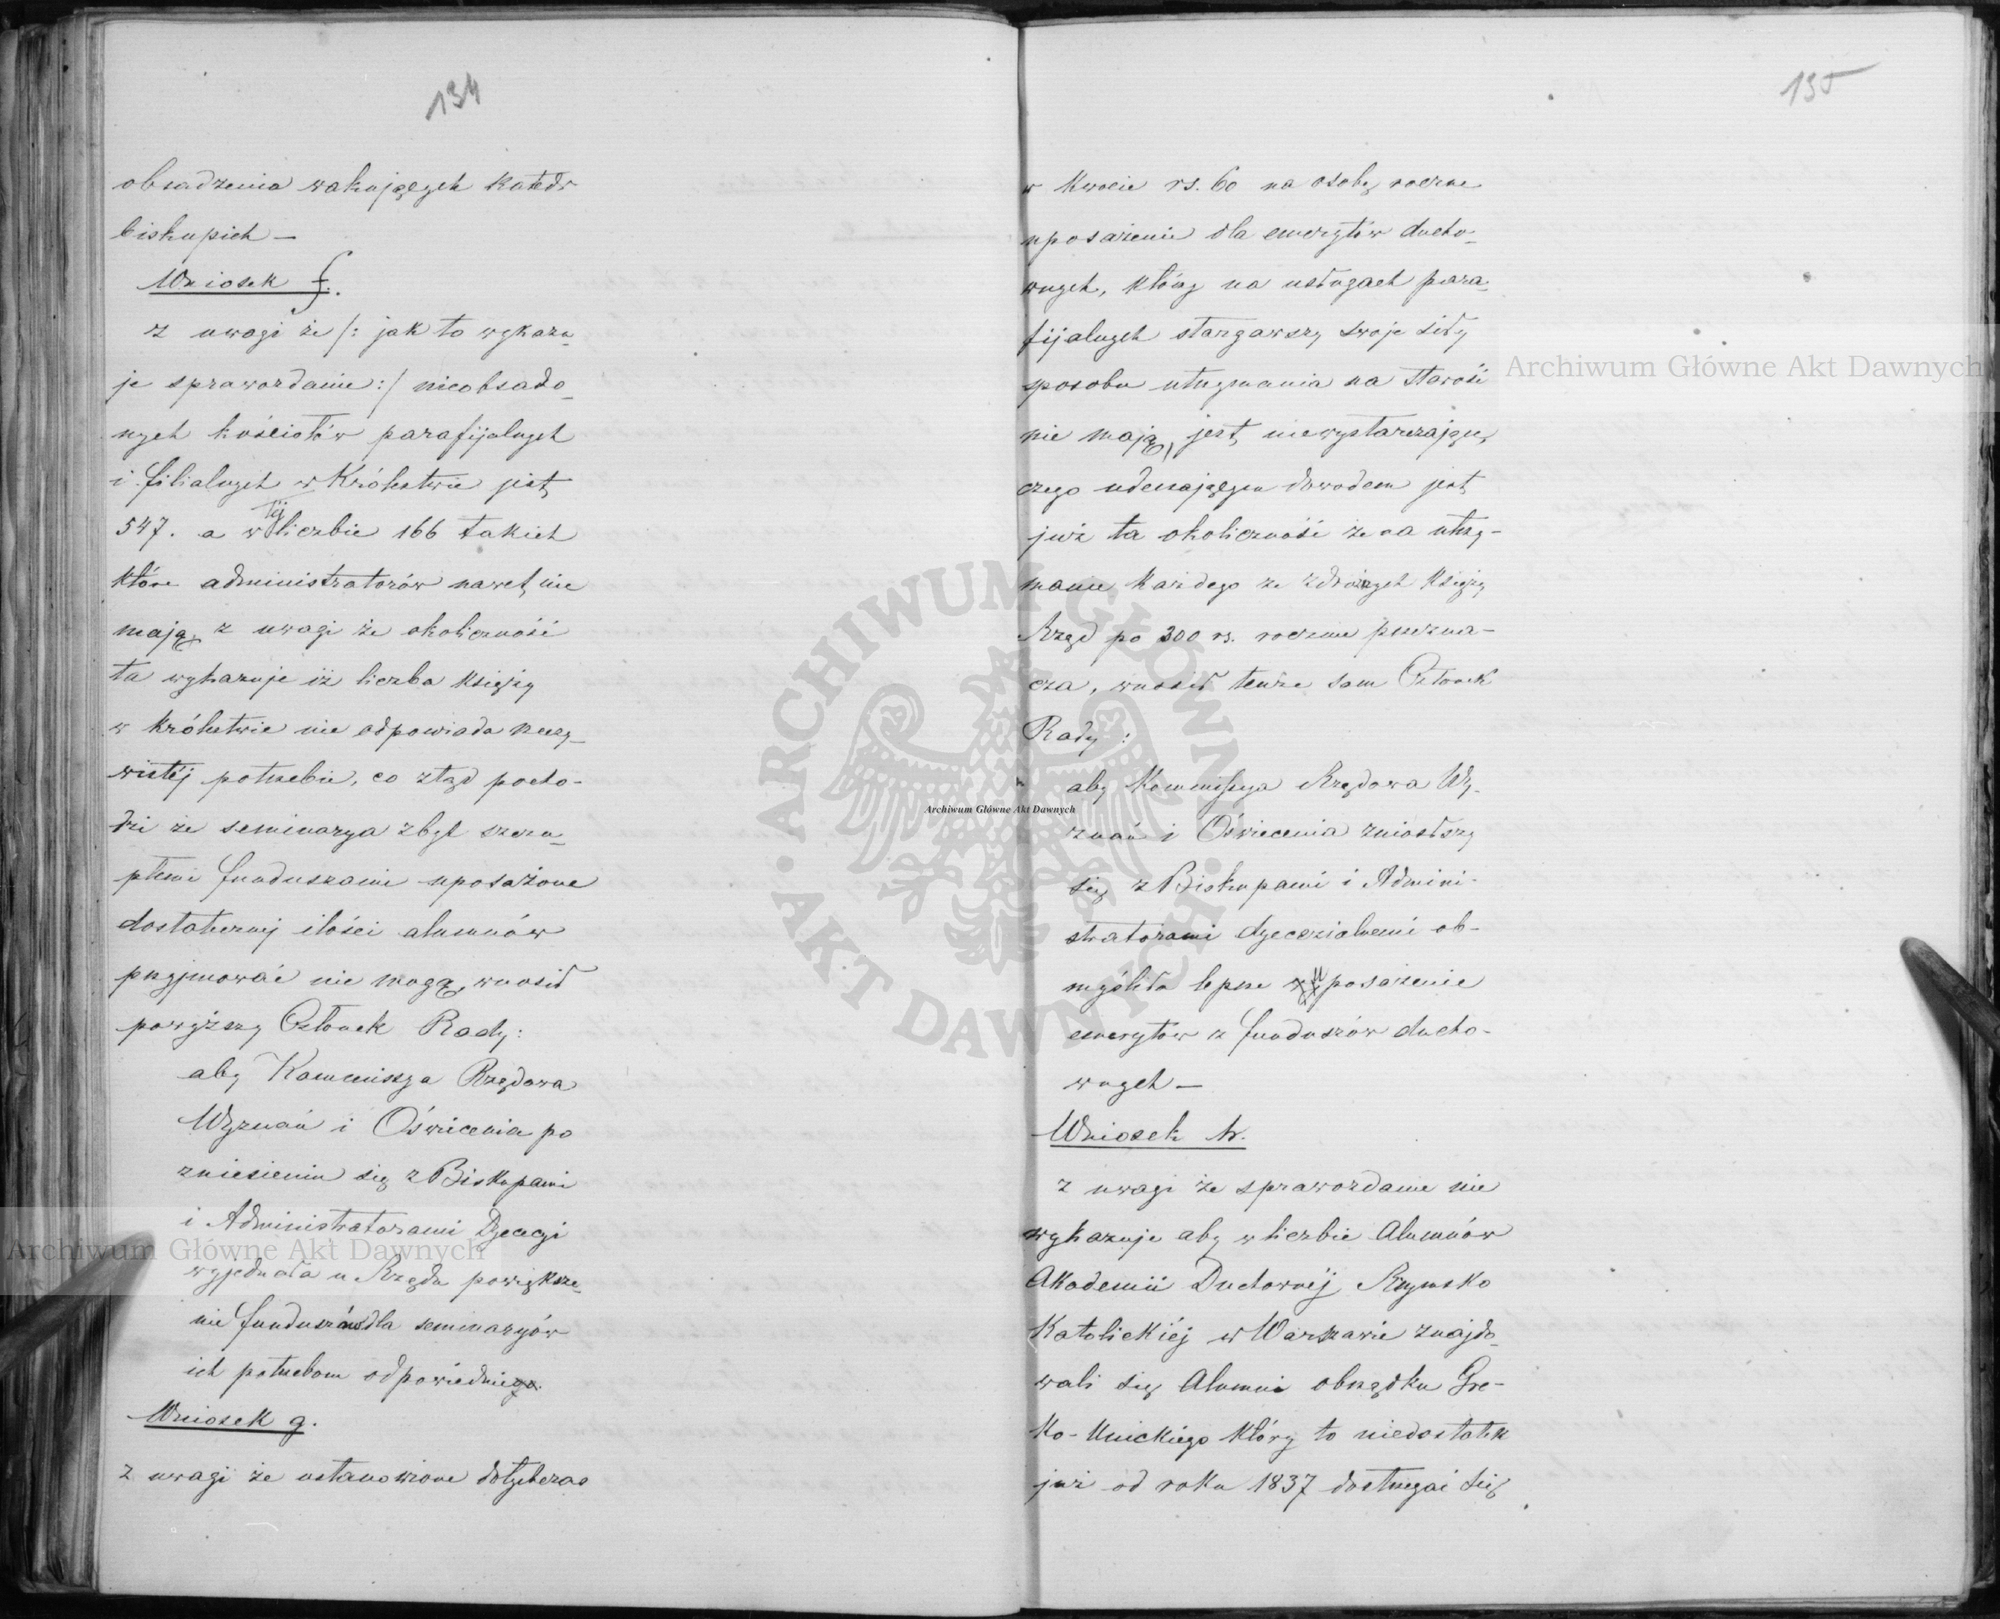 134
obsadzenia wakujących katedr
biskupich —
Wniosek f.
z uwagi że /: jak to wykazu-
je sprawozdanie :/ nieobsadzo-
nych kościołów parafijalnych
i filialnych w Królestwie jest
547. a w téj liczbie 166 takich
które administratorów nawet nie
mają, z uwagi że okoliczność
ta wykazuje iż liczba księży
w królestwie nie odpowiada rzeczy-
wistéj potrzebie, co ztąd pocho-
dzi że seminarya zbyt szczu-
płemi funduszami uposażone
dostatecznej ilości alumnów
przyjmować nie mogą, wnosił
powyższy Członek Rady:
aby Kommissya Rządowa
Wyznań i Oświecenia po
zniesieniu się z Biskupami
i Administratorami Dyecezji
wyjednała u Rządu powiększe-
nie funduszów dla seminaryów
ich potrzebom odpowiednie.
Wniosek g.
z uwagi że ustanowione dotychczas
135
w kwocie rs. 60 na osobę roczne
uposażenie dla emerytów ducho-
wnych, którzy na usługach para-
fijalnych stargawszy swoje siły
sposobu utrzymania na starość
nie mają, jest niewystarczające,
czego uderzającym dowodem jest
już ta okoliczność że na utrzy-
manie każdego ze zdrożnych księży
Rząd po 300 rs. rocznie przezna-
cza, wnosił tenże sam Członek
Rady:
aby Kommissya Rządowa Wy-
znań i Oświecenia zniosłszy
się z Biskupami i Admini-
stratorami dyecezialnemi ob-
myśliła lepsze uposażenie
emerytów z funduszów ducho-
wnych —
Wniosek h.
z uwagi że sprawozdanie nie
wykazuje aby w liczbie Alumnów
Akademii Duchownéj Rzymsko
Katolickiéj w Warszawie znajdo-
wali się Alumni obrządku Gre-
ko-Unickiégo który to niedostatek
już od roku 1837 dostrzegać się
Archiwum Główne Akt Dawnych
Archiwum Główne Akt Dawnych
Archiwum Główne Akt Dawnych
ARCHIWUM GŁÓWNE · AKT DAWNYCH ·